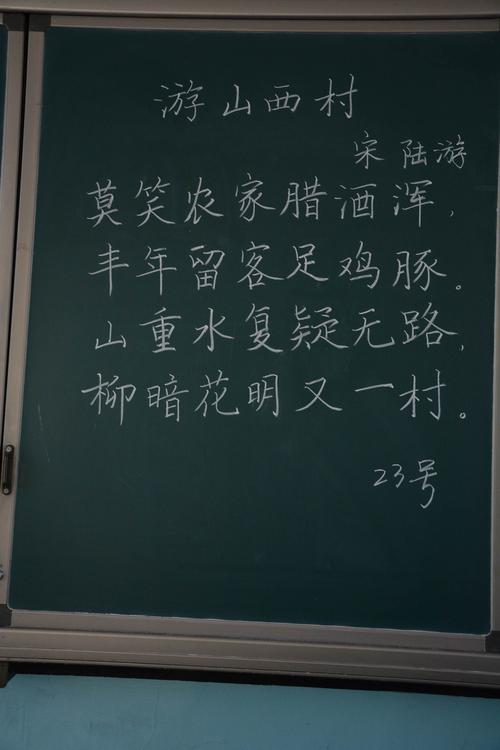 游山西村
宋 陆游
莫笑农家腊酒浑,
丰年留客足鸡豚。
山重水复疑无路,
柳暗花明又一村。
23号